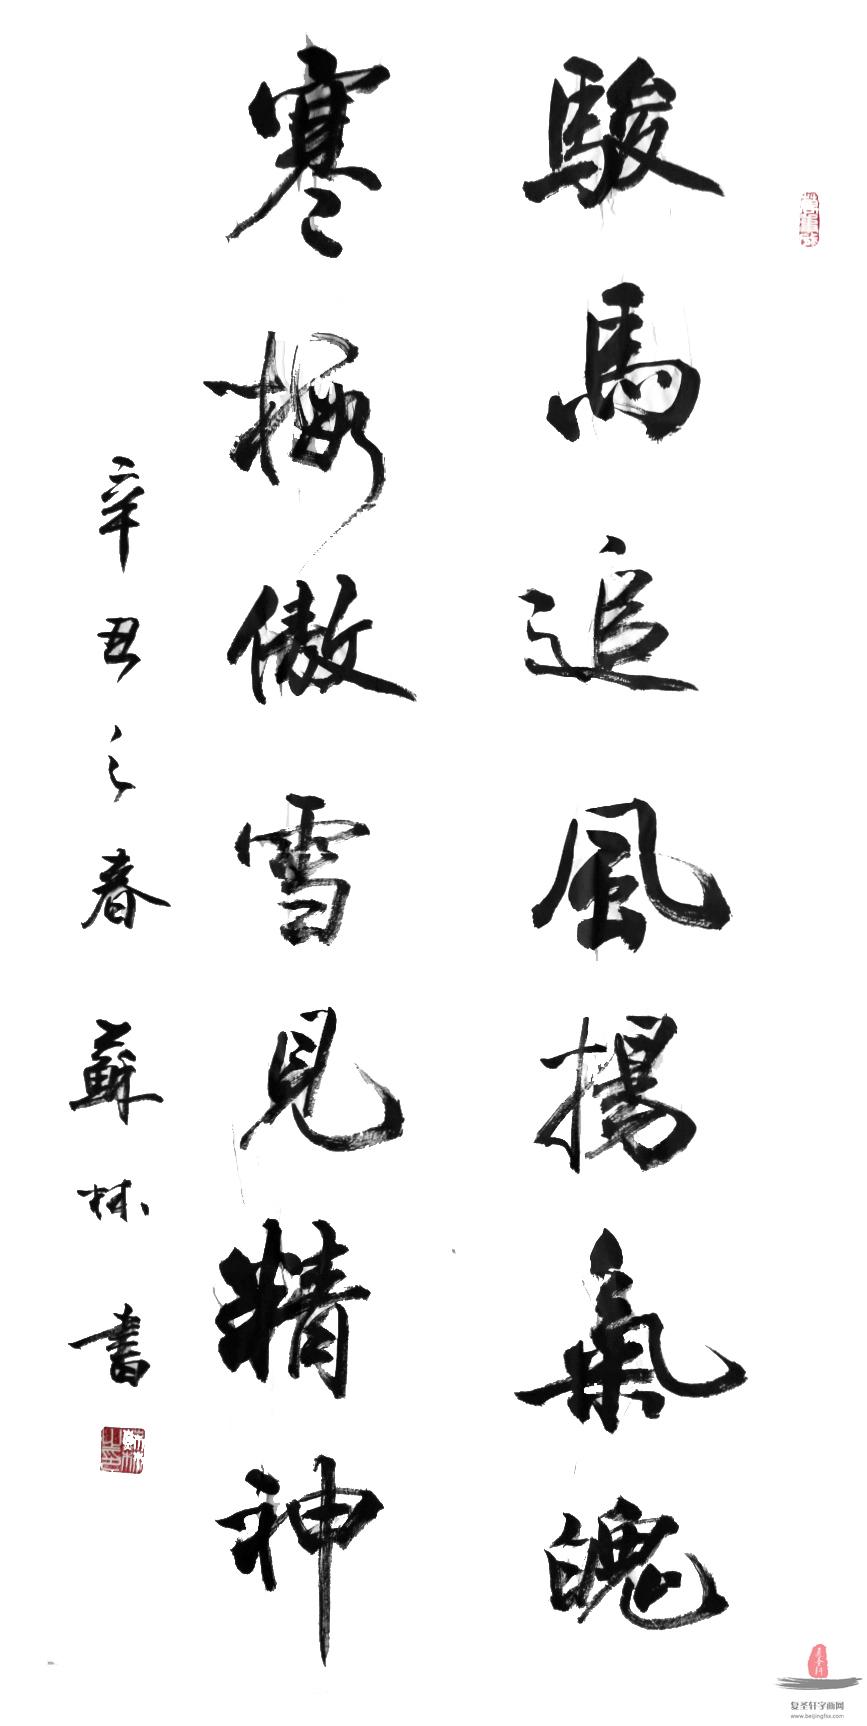 駿馬追風揚氣魄
寒梅傲雪見精神
辛丑之春 蘇林書
复圣轩字画网
www.beijingfsx.com